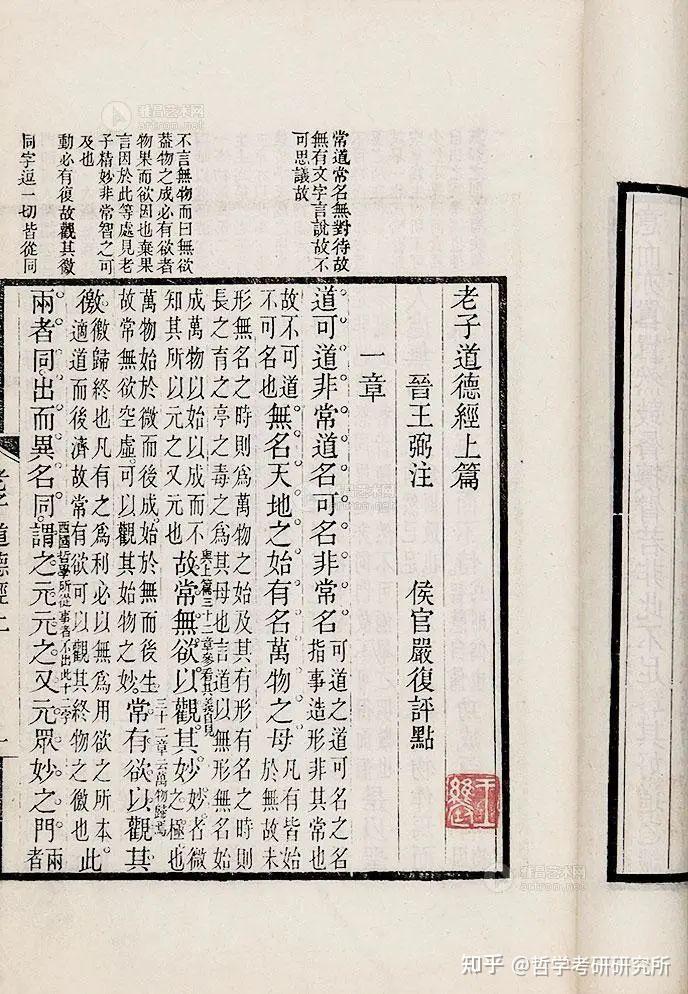 常道常名無對待故
無有文字言說故不
可思議故
不言無物而曰無欲
蓋物之成必有欲者
物果而欲因也棄果
言因於此等處見老
子精妙非常智之可
及也
動必有復故觀其徼
同字逗一切皆從同
老子道德經上篇
晉王弼注 侯官嚴復評點
一章
道可道。非常道。名可名。非常名。
可道之道可名之名
指事造形非其常也
故不可道
不可名也
無名天地之始。有名萬物之母。
凡有皆始
於無故未
形無名之時則為萬物之始及其有形有名之時則
長之育之亭之毒之為其母也言道以無形無名始
成萬物以始以成而不
知其所以元之又元也
與上篇三十二章參看其義自見
故常無欲以觀其妙。
妙者微
之極也
萬物始於微而後成。始於無而後生。
故常無欲空虛。可以觀其始物之妙。
三十二章云萬物歸焉
常有欲以觀其
徼。
徼歸終也凡有之為利必以無為用欲之所本。
適道而後濟故常有欲可以觀其終物之徼也
此
西國哲學所從事者不出此十二字
兩者。同出而異名。同謂之元。元之又元。眾妙之門。
兩
者
道德經上
一
雅昌艺术网
artron.net
知乎 @哲学考研研究所